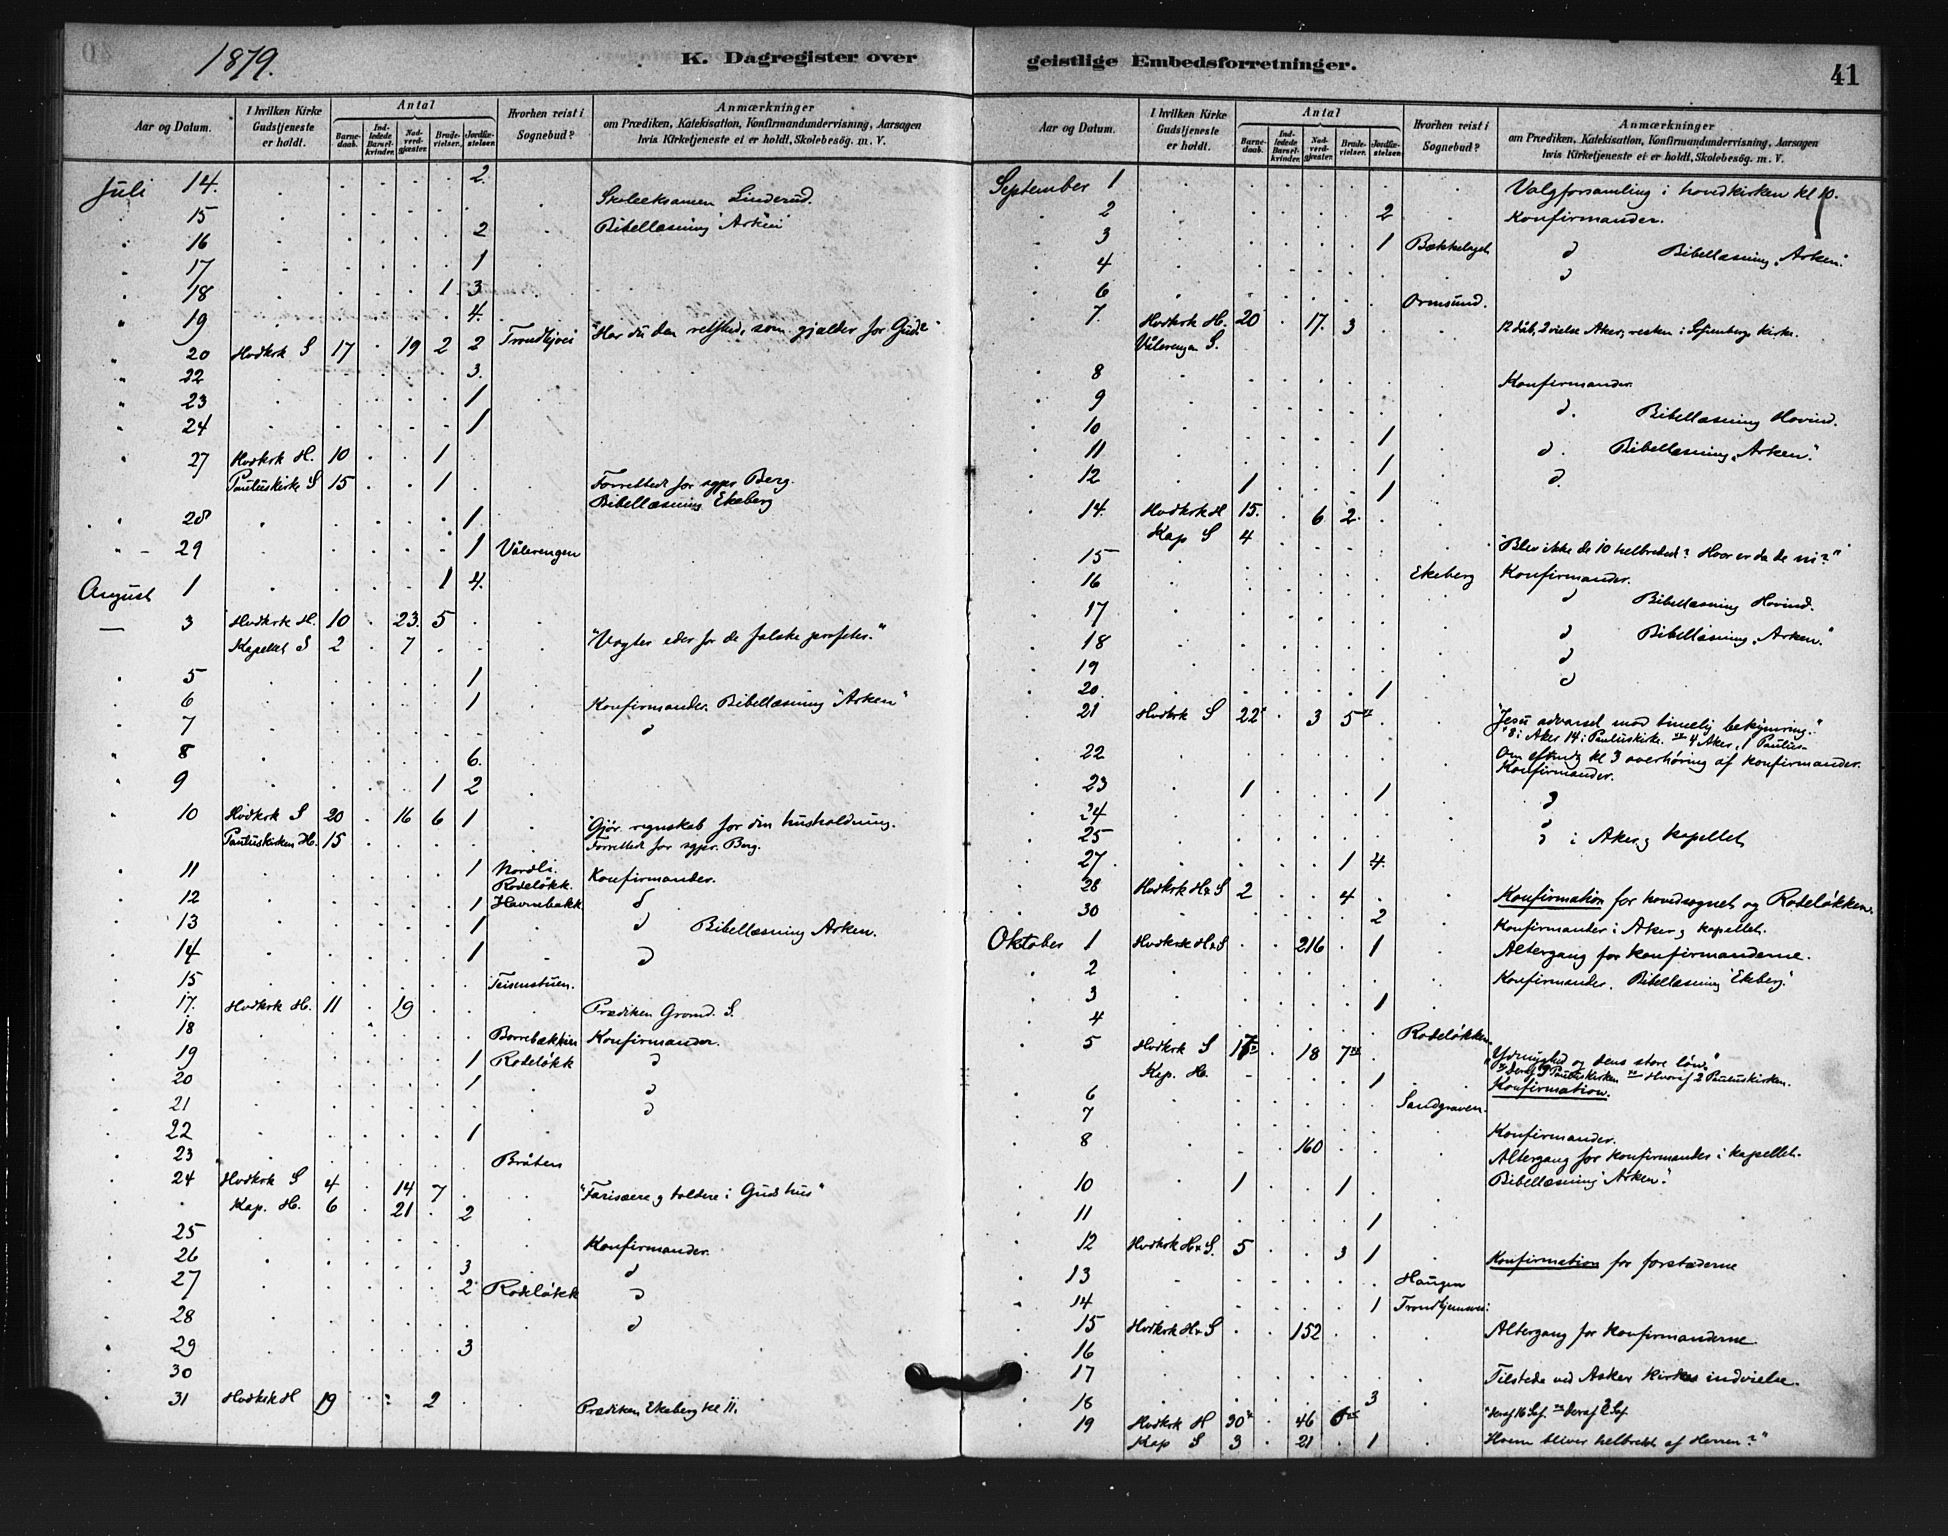 1879.
K. Dagregister over
Aar og Datum. I hvilken Kirke Gudstjeneste er holdt. Antal Barnedaab. Indledede Barselkvinder. Nadverdgjæster. Brudevielser. Jordfæstelser. Hvorhen reist i Sognebud? Anmærkninger om Prædiken, Katekisation, Konfirmandundervisning, Aarsagen hvis Kirketjeneste ei er holdt, Skolebesög. m. V.
Juli 14. 2.
15 Skoleeksamen Linderud.
16 2 Bibellæsning "Arken"
17 1
18 1 3
19 4.
20 Hvdkrk S 17 19 2 2 Trondhjvei "Har du den retfærd, som gjælder for Gud?"
22 3.
23 1
24 1
27 Hvdkrk H. 10 1
Pauluskirke S 15 1 Forrettede for sgpr Berg.
28 1 Bibellæsning Ekeberg
29 1 Vålerengen
August 1 1 4.
3 Hvdkrk H. 10 23. 5
Kapellet S 2 7 "Vogter eder for de falske profeter."
5 1
6 1 Konfirmander. Bibellæsning "Arken"
7 d
8 6.
9 1 2
10 Hvdkrk S 20 16 6 1 "Gjør regnskab for din husholdning.
Pauluskirken H. 15 Forrettede for sgpr. Berg.
11 1 Nordli. Rodeløkk. Konfirmander.
12 1 Havnebakk d
13 1 d Bibellæsning Arken.
14 1 d
15 Teisenstuen.
17. Hvdkrk H. 11 19 Prædiken Grorud. S.
18 Borrebækken Konfirmander.
19 1 Rodeløkk d
20 1 d
21 d
22 1
23 Bråten
24 Hvdkrk S 4 14 7 "Farisæere og toldere i Guds hus"
Kap. H. 6 21 2
25 Konfirmander.
26 3 d
27 2 Rodeløkk d
28 d
29 3
30
31 Hvdkrk H 19 2 Prædiken Ekeberg kl 11.
geistlige Embedsforretninger. 41
Aar og Datum. I hvilken Kirke Gudstjeneste er holdt. Antal Barnedaab. Indledede Barselkvinder. Nadverdgjæster. Brudevielser. Jordfæstelser. Hvorhen reist i Sognebud? Anmærkninger om Prædiken, Katekisation, Konfirmandundervisning, Aarsagen hvis Kirketjeneste ei er holdt, Skolebesög. m. V.
September 1 Valgforsamling i hovedkirken kl 10.
2 2 Konfirmander.
3 1 Bækkelaget d Bibellæsning "Arken".
4 d
6 Ormsund.
7. Hvdkrk H. 20 17. 3 12 dåb, 2 vielse Aker, resten i Sofienberg kirke.
Vålerengen S.
8 Konfirmander.
9 d. Bibellæsning Hovind.
10 1
11 1 d. Bibellæsning "Arken".
12 1 1 d.
14. Hvdkrk H 15. 6 2.
Kap S 4 "Blev ikke de 10 helbredet? Hvor er da de ni?"
15 Ekeberg Konfirmander.
16 d Bibellæsning Hovind.
17
18 d Bibellæsning "Arken."
19 d
20. 1 d
21 Hvdkrk S 22 3 5 "Jesu advarsel mod timelig bekymring."
8 i Aker 14 i Pauluskirke. 4 Aker, 1 Paulus-
22 Om eftmdg kl 3 overhøring af konfirmander.
Konfirmander.
23 1 1 d
24 d
25 d i Aker og kapellet
27 1 4.
28 Hvdkrk H & S 2 4 Konfirmation for hovedsognet og Rodeløkken.
30 2 Konfirmander i Aker og kapellet.
Oktober 1 Hvdkrk H & S 216 1 Altergang for konfirmanderne.
2 Konfirmander. Bibellæsning "Ekeberg".
3 1
4 Rodeløkken
5 Hvdkrk S 17 18 7 "Ydmyghed og dens store løn."
Kap. H. 1 deraf 9 Pauluskirken Hvoraf 2 Pauluskirken.
6 Sandgraven. Konfirmation.
7 Konfirmander.
8 160 Altergang for konfirmander i kapellet.
10 1 1 Bibellæsning "Arken".
11 1
12 Hvdkrk H & S. 5 3 1 Konfirmation for forstæderne
13 Haugen
14 1 Trondhjemsvei:
15 Hvdkrk H & S 152 Altergang for konfirmanderne
16
17 Tilstede ved Asker kirkes indvielse.
18 3
19 Hvdkrk H 30 46 6 deraf 16 Sof. deraf 2 Sof.
Kap S 3 21 1 "Hvem bliver helbredet af Herren?"